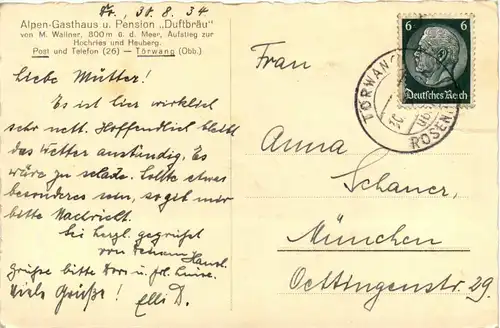 30.8.34
Alpen-Gasthaus u. Pension „Duftbräu"
von M. Wallner, 800 m ü. d. Meer, Aufstieg zur
Hochries und Heuberg.
Post und Telefon (26) — Törwang (Obb.)
Liebe Mutter!
Es ist hier wirklich
sehr nett. Hoffentlich bleibt
das Wetter anständig. Es
wäre zu schade. Sollte etwas
besonderes sein, so gib mir
bitte Nachricht.
Sei herzl. gegrüßt
von Deinem Hansl.
Grüße bitte u. Frl. Luise.
Viele Grüße! Elli D.
Frau
Anna
Schauer,
München
Oettingenstr. 29.
6 6
Deutsches Reich
TÖRWANG
ROSENH